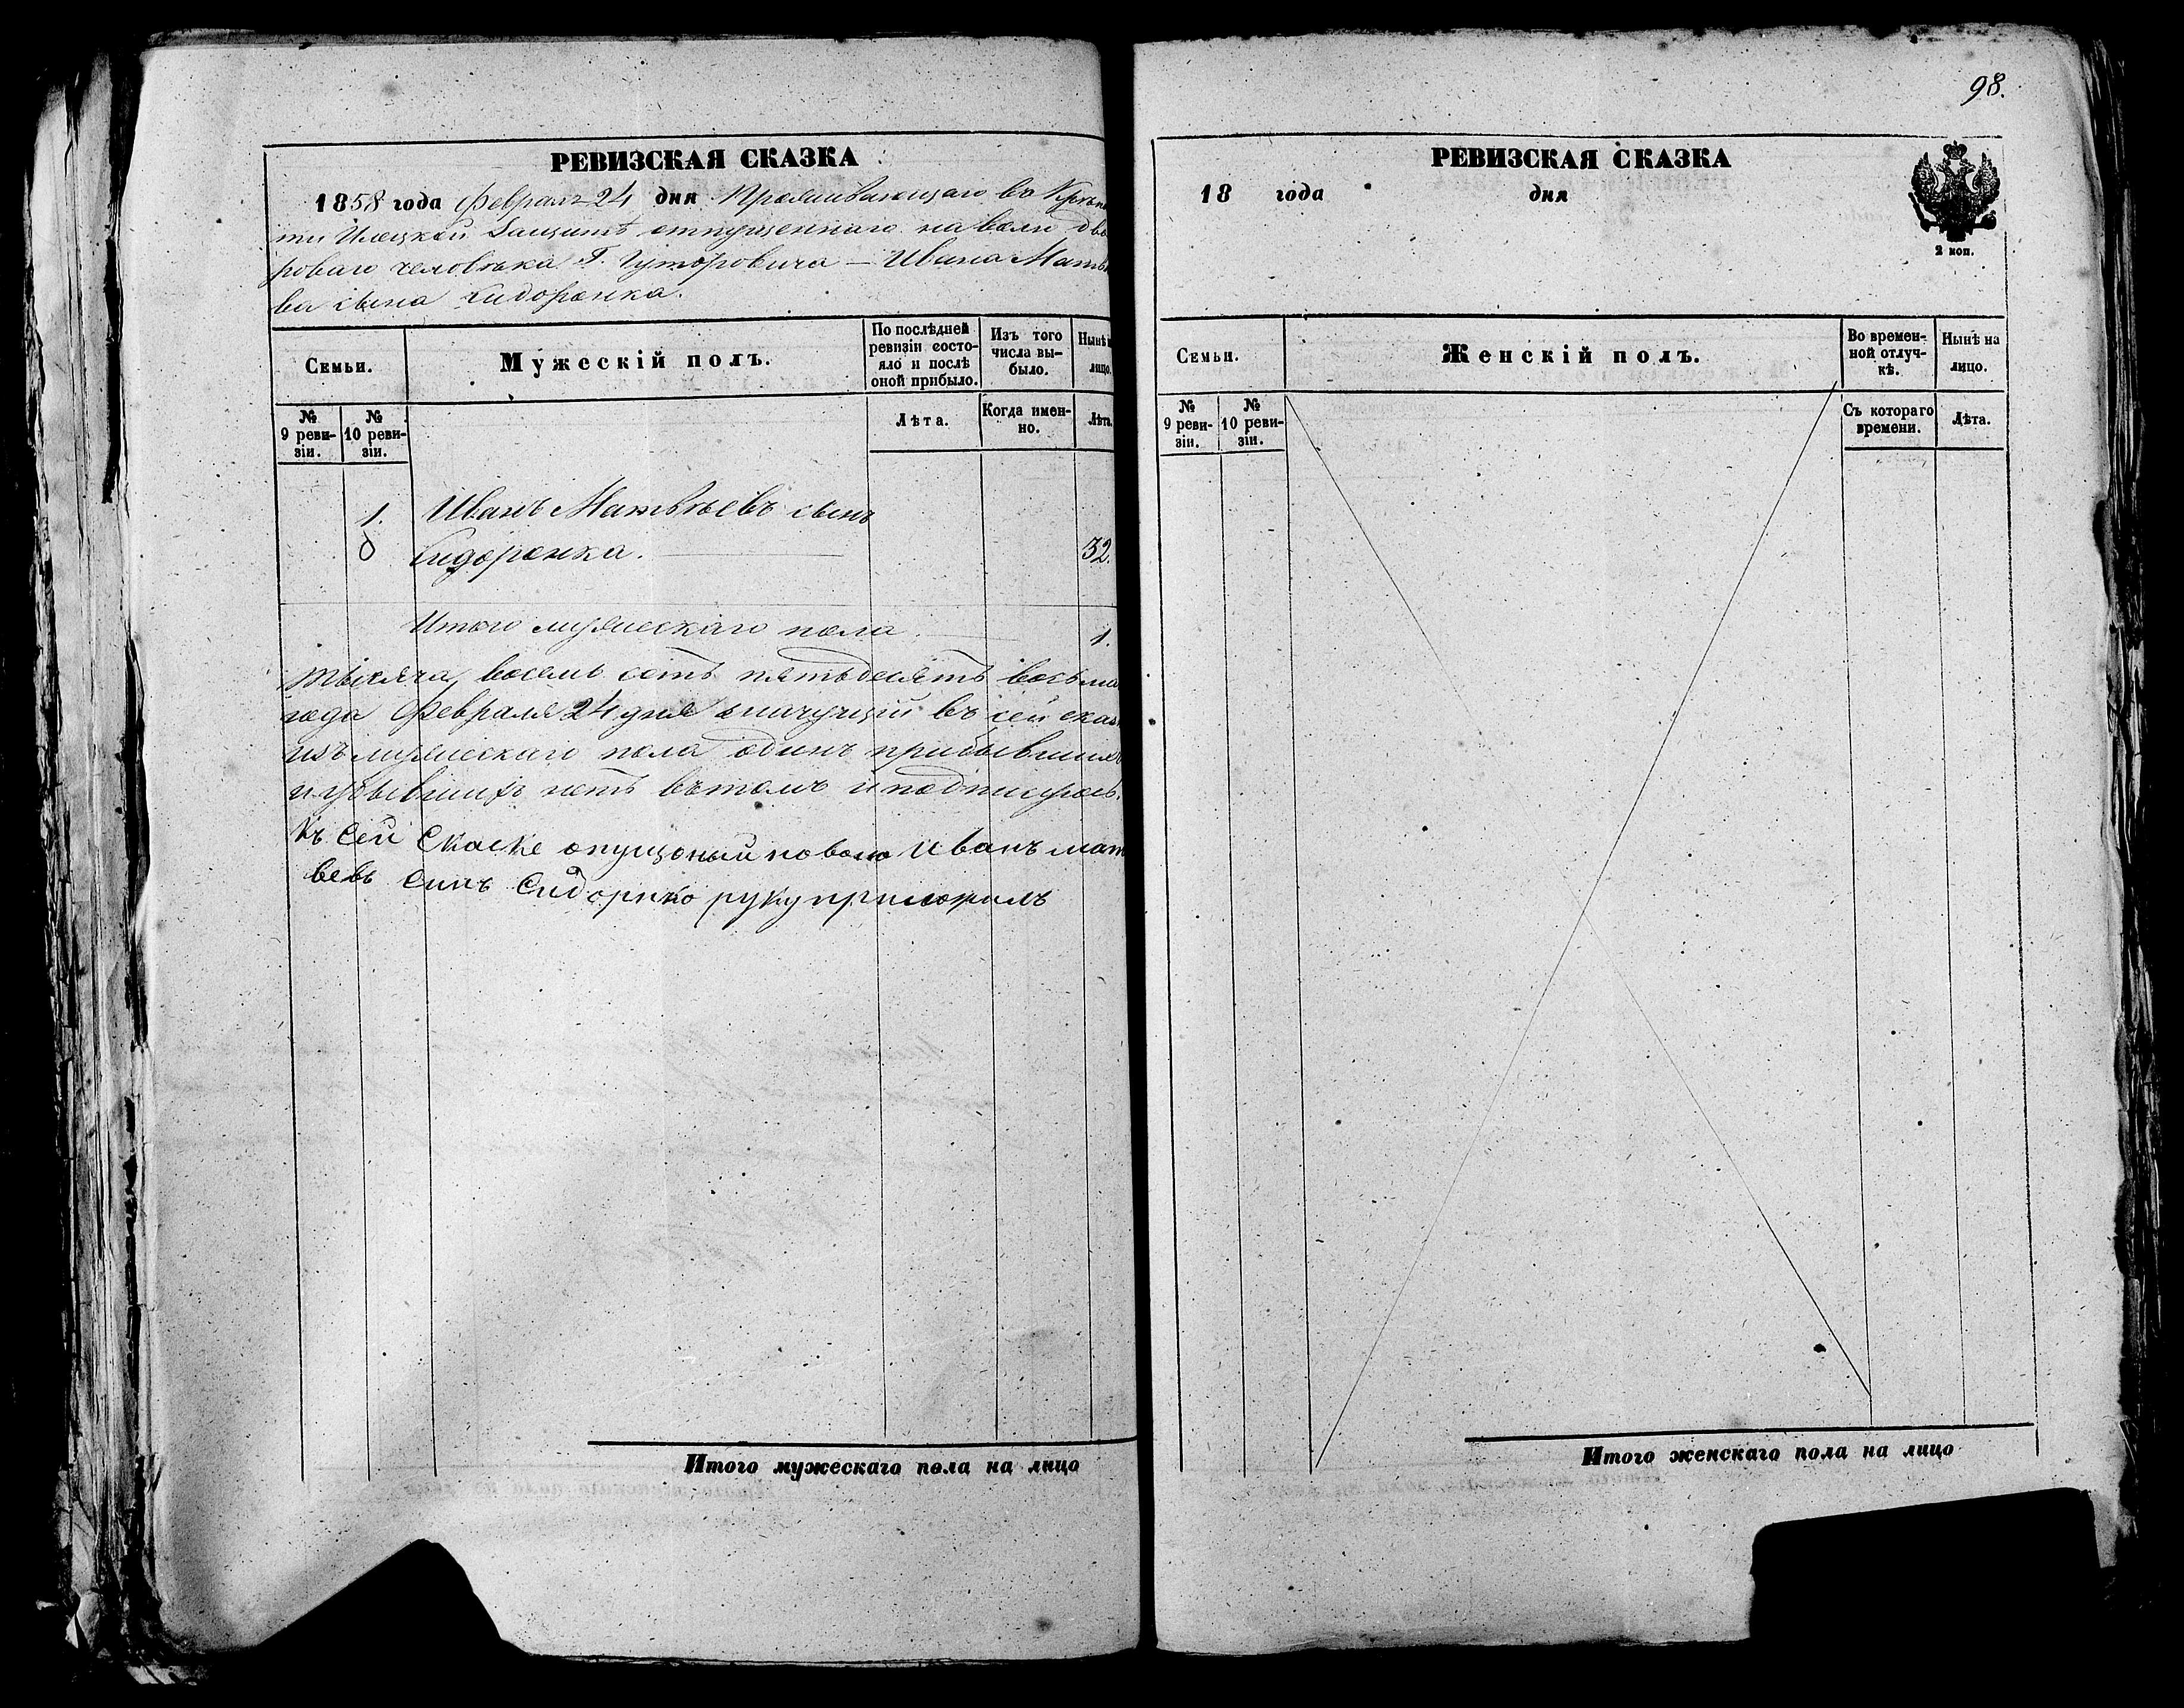 98.
РЕВИЗСКАЯ СКАЗКА
1858 года Февраля 24 дня Проживающаго въ Крѣпо
сти Илецкой Защитѣ отпущеннаго на волю дво
роваго человѣка Г. Гуторовича — Ивана Матвѣ
ва сына Сидоренка.
Семьи.
Мужескій полъ.
По послѣдней
ревизіи состо-
яло и послѣ
оной прибыло.
Изъ того
числа вы-
было.
Нынѣ
лицо.
№
9 реви-
зіи.
№
10 реви-
зіи.
Лѣта.
Когда имен-
но.
Лѣта.
1. Иванъ Матвѣевъ сынъ
Сидоренка. 32.
Итого мужескаго пола. 1.
тысяча восемь сотъ пятьдесятъ восьма
года Февраля 24 дня значущій въ сей сказ
изъ мужескаго пола одинъ прибывших
и убывшихъ нетъ въ томъ и подписуюсь.
Къ сей Скаске опущоный новолю Иванъ мат
вевъ Синъ Сидорнко руку приложилъ
Итого мужескаго пола на лицо
РЕВИЗСКАЯ СКАЗКА
18 года дня
2 коп.
Семьи.
Женскій полъ.
Во времен-
ной отлуч-
кѣ.
Нынѣ на
лицо.
№
9 реви-
зіи.
№
10 реви-
зіи.
Съ котораго
времени.
Лѣта.
Итого женскаго пола на лицо